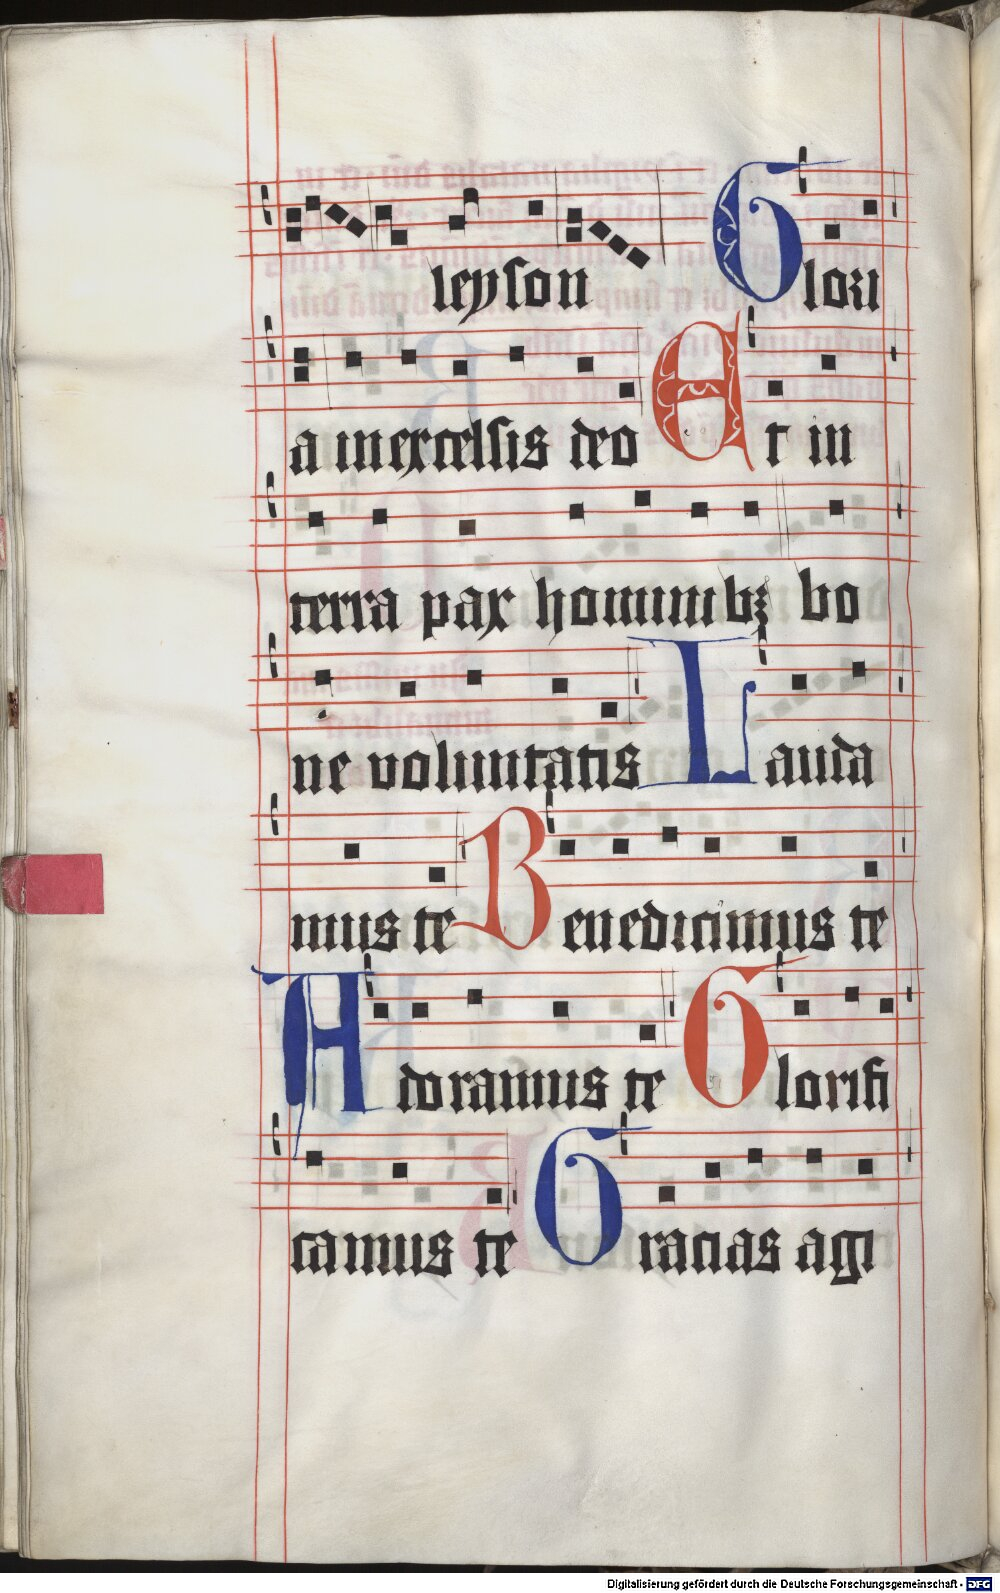 leyson Glori
a in excelsis deo Et in
terra pax hominibꝫ bo
ne voluntatis Lauda
mus te Benedicimus te
Adoramus te Glorifi
camus te Gracias agi
Digitalisierung gefördert durch die Deutsche Forschungsgemeinschaft - DFG